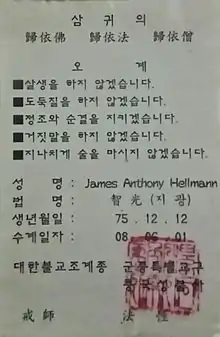 삼 귀 의
歸依佛 歸依法 歸依僧
오 계
■살생을 하지 않겠습니다.
■도둑질을 하지 않겠습니다.
■정조와 순결을 지키겠습니다.
■거짓말을 하지 않겠습니다.
■지나치게 술을 마시지 않겠습니다.
성 명 : James Anthony Hellmann
법 명 : 智光 (지 광)
생년월일 : 75 . 12 . 12
수계일자 : 08 . 06 . 01
대한불교조계종 군종특별교구
戒師 法